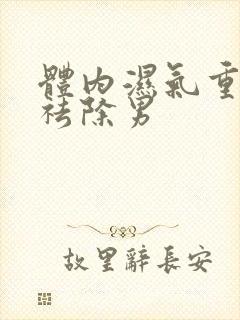 體內濕氣重
祛除男
故里辭長安